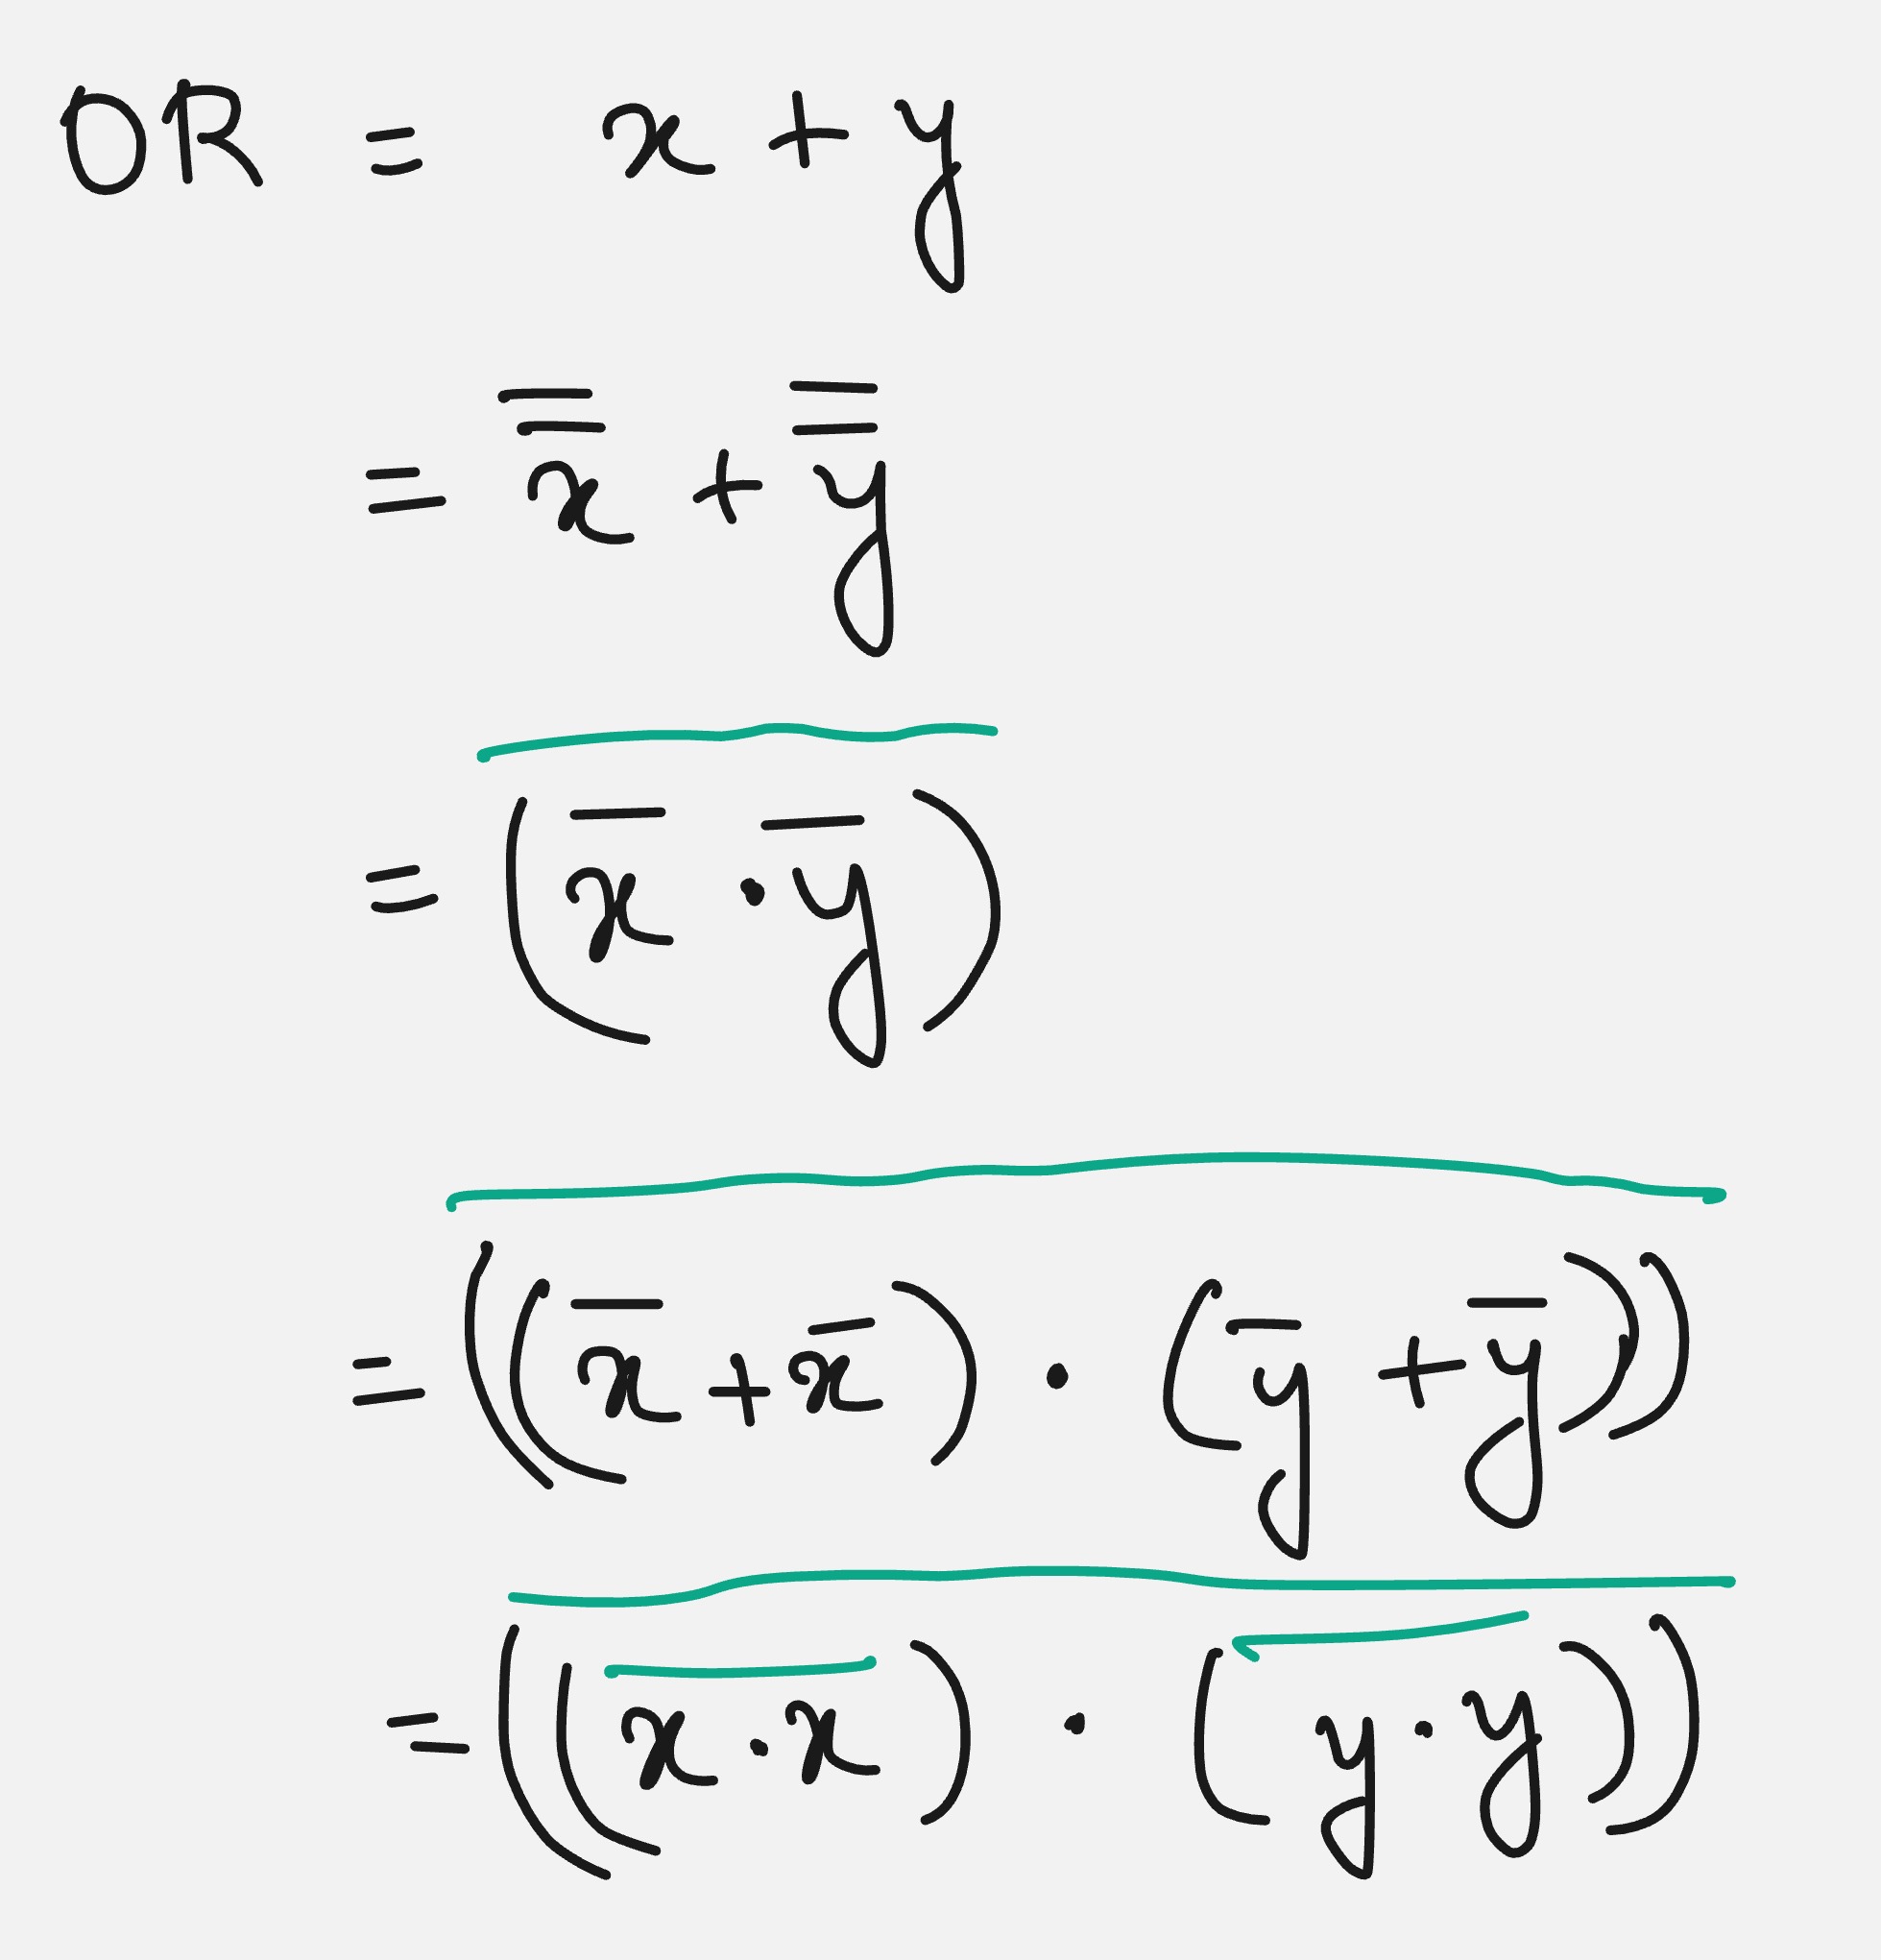 OR = x + y
= x̿ + y̿
= \overline{(x̅ · y̅)}
= \overline{((x̅ + x̅) · (y̅ + y̅))}
= \overline{((\overline{x · x}) · (\overline{y · y}))}